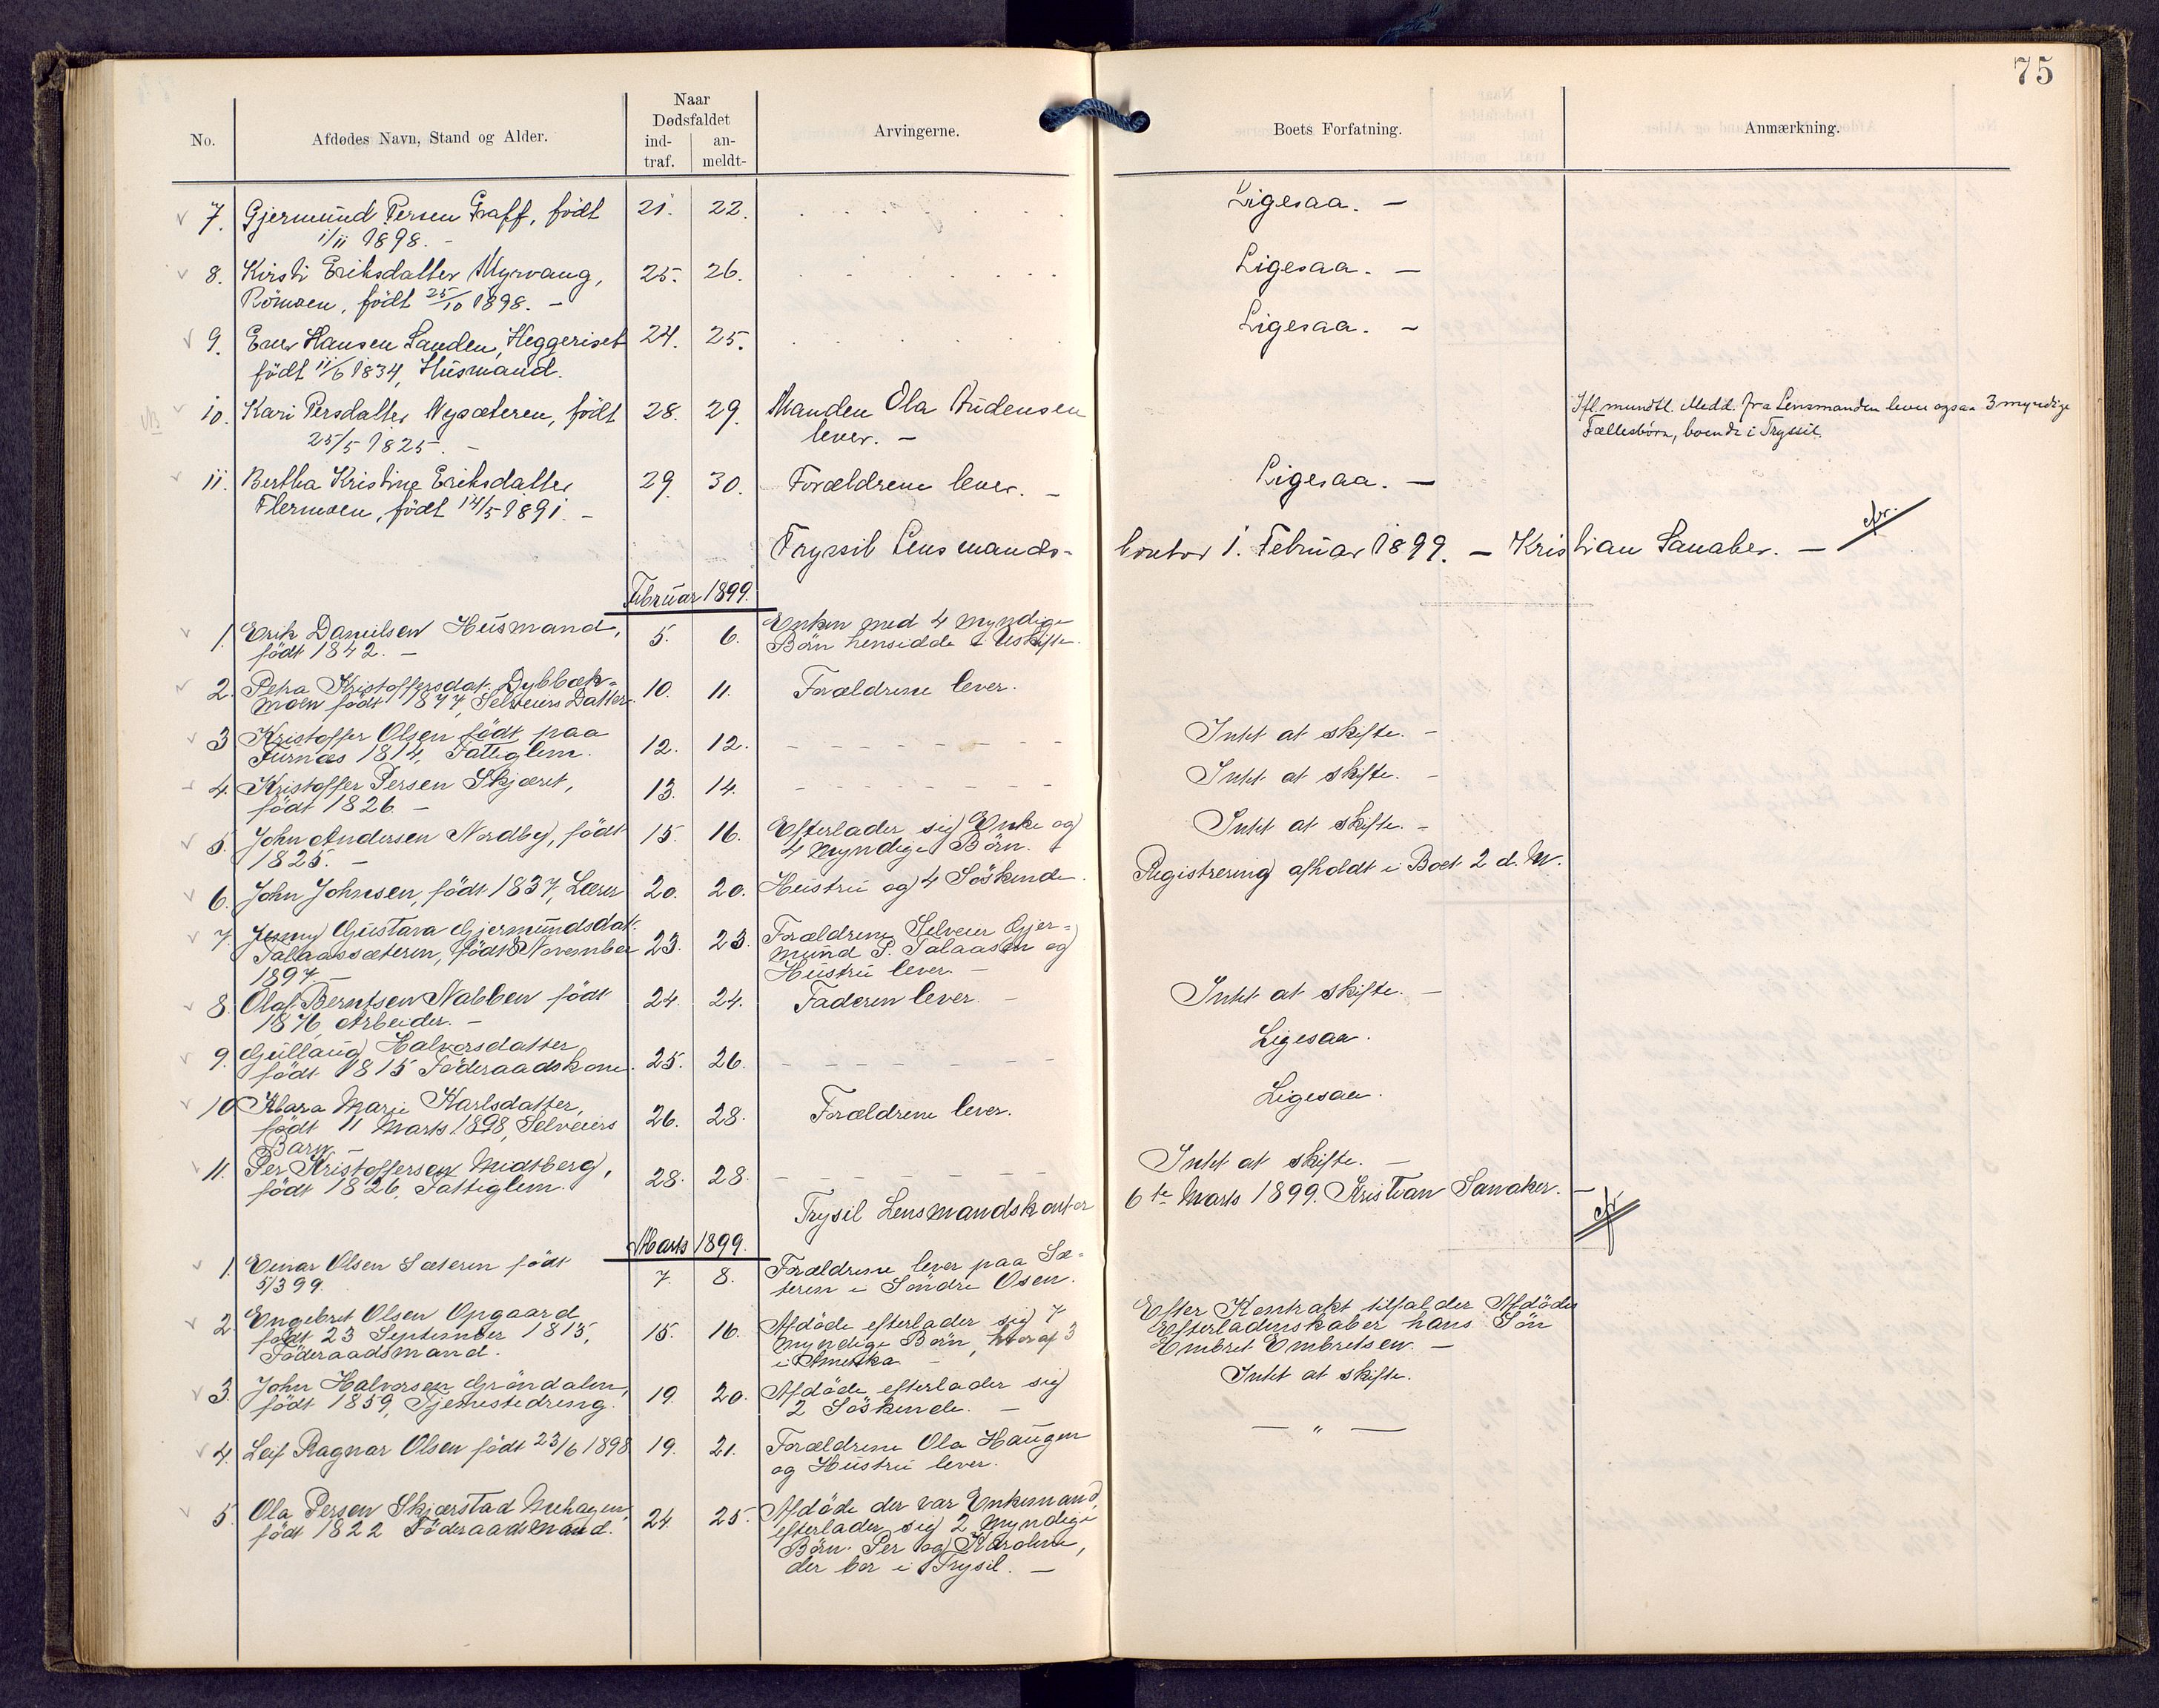 75
No. Afdødes Navn, Stand og Alder. Naar Dødsfaldet ind-traf. an-meldt- Arvingerne. Boets Forfatning. Anmærkning.
7. Gjermund Persen Graff, født 21. 22. Ligesaa. —
1/11 1898. –
8. Kirsti Eriksdatter Myrvang, 25. 26. Ligesaa. —
Römoen, født 25/10 1898. –
9. Hansen Sanden, Heggeriset 24. 25. Ligesaa. —
født 11/6 1834, Husmand.
10. Kari Persdatter Nysæteren, født 28. 29. Manden Ola Audensen Ifl. mundtl. Medd. fra Lensmanden lever ogsaa 3 myndige
25/5 1825. – lever. – Fællesbörn, boende i Tryssil.
11. Bertha Kristine Eriksdatter 29. 30. Forældrene lever. – Ligesaa. —
Flermoen, født 14/5 1891. –
Tryssil Lensmands- kontor 1. Februar 1899. – Kristian Sanaker. —
Februar 1899.
1. Erik Danielsen Husmand, 5. 6. Enken med 4 myndige
født 1842. – Börn hensidde i Uskifte.
2. Petra Kristoffersdat. Dybbæk- 10. 11. Forældrene lever.
moen født 1877, Selveiers Datter.
3 Kristoffer Olsen født paa 12. 12. Intet at skifte. –
Furnæs 1814, Fattiglem.
4. Kristoffer Persen Skjæret, 13. 14. Intet at skifte. –
født 1826. –
5. John Andersen Nordby, født 15. 16. Efterlader sig Enke og Intet at skifte. –
1825. – 4 myndige Börn.
6. John Johnsen, født 1837, Lærer 20. 20. Hustru og 4 Söskende. Registrering afholdt i Boet 2 d. M.
7. Jenny Gustava Gjermundsdat. 23. 23. Forældrene Selveier Gjer-
Talaassæteren, født November mund P. Talaasen og
1897. – Hustru lever. –
8. Olaf Berntsen Nabben født 24. 24. Faderen lever. – Intet at skifte. –
1876, Arbeider. –
9. Gullaug Halvorsdatter 25. 26. Ligesaa.
født 1815 Föderaadskone.
10 Klara Marie Karlsdatter, 26. 28. Forældrene lever. Ligesaa.
født 11 Marts 1898, Selveiers
Barn. –
11. Per Kristoffersen Midtberg, 28. 28. Intet at skifte. –
født 1826, Fattiglem.
Trysil Lensmandskontor 6te Marts 1899. Kristian Sanaker. –
Marts 1899.
1. Einar Olsen Sæteren født 7. 8. Forældrene lever paa Sæ-
5/3 99. teren i Söndre Osen.
2. Engebret Olsen Opgaard 15. 16. Afdöde efterlader sig 7 Efter Kontrakt tilfalder Afdödes
født 23 September 1815, myndige Börn, hvoraf 3 Efterladenskaber hans Sön
Föderaadsmand. i Amerika – Embret Embretsen. –
3. John Halvorsen Gröndalen, 19. 20. Afdöde efterlader sig Intet at skifte.
født 1859, Tjenestedreng. 2 Söskende. –
4. Leif Ragnar Olsen født 23/6 1898 19. 21. Forældrene Ola Haugen — „ —
og Hustru lever.
5. Ola Persen Skjærstad født 1822 Föderaadsmand. 24. 25. Afdöde der var Enkemand,
efterlader sig 2 myndige
Börn. Per og Karoline,
der bor i Trysil. –